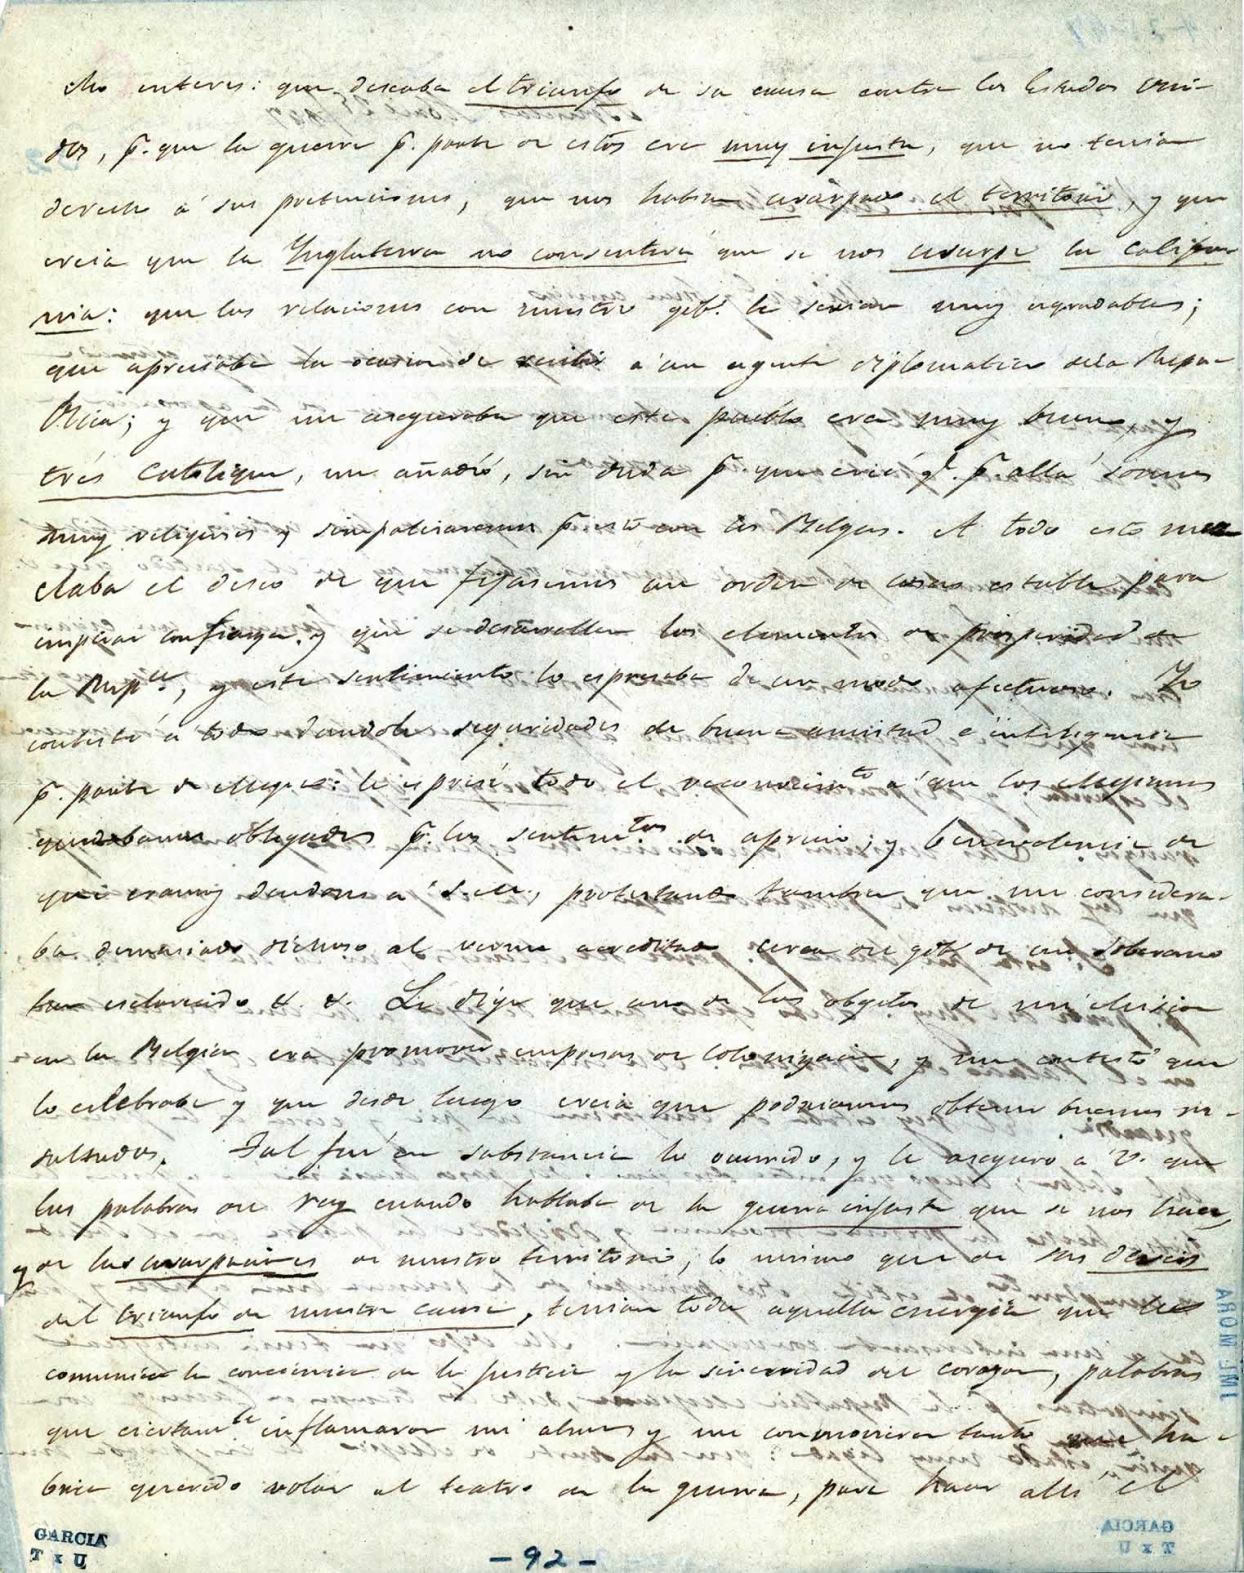 cho interes: que deseaba el triunfo de su causa contra los Estados Uni-
dos, p.r que la guerra p.r parte de estos era muy injusta, que no tenian
derecho á sus pretenciones, que nos habian usurpado el territorio, y que
creia que la Ynglaterra no consentirá que se nos usurpe la Califor
nia: que las relaciones con nuestro gob.o le serian muy agradables;
que apreciaba la ocasion de recibir á un agente diplomatico de la Repu-
blica; y que me aseguraba que este pueblo era muy bueno, y
trés Catolique, me añadió, sin duda p.r que creió q.e p.r allá somos
muy religiosos y simpatizaremos p.r esto con los Belgas. A todo esto mez
claba el deseo de que fijasemos un orden de cosas estable para
inspirar confianza, y que se desarrollen los elementos de prosperidad de
la Rep.ca, y este sentimiento lo espresaba de un modo afectuoso. Yo
contesté á todo dandole seguridades de buena amistad é inteligencia
p.r parte de Megico: le espresé todo el reconocim.to á que los Megicanos
quedabamos obligados p.r los sentim.tos de aprecio, y benevolencia de
que eramos deudores á S.M., protestando tambien que me considera-
ba demasiado dichoso al verme acreditado cerca del gob.o de un Soberano
tan esclarecido &. &. Le dige que uno de los obgetos de mi Mision
en la Belgica era promover empresas de Colonizacion, y me contestó que
lo celebraba y que desde luego creia que podriamos obtener buenos re-
sultados. Tal fué en substancia lo ocurrido, y le aseguro á V. que
las palabras del Rey cuando hablaba de la guerra injusta que se nos hace,
y de las usurpaciones de nuestro territorio, lo mismo que de sus deseos
del triunfo de nuestra causa, tenian toda aquella energia que les
comunica la conciencia de la justicia y la sinceridad del corazon, palabras
que ciertam.te inflamaron mi alma, y me conmovieron tanto que ha-
bria querido volar al teatro de la guerra, para hacer alli el
GARCIA
T x U
- 92 -